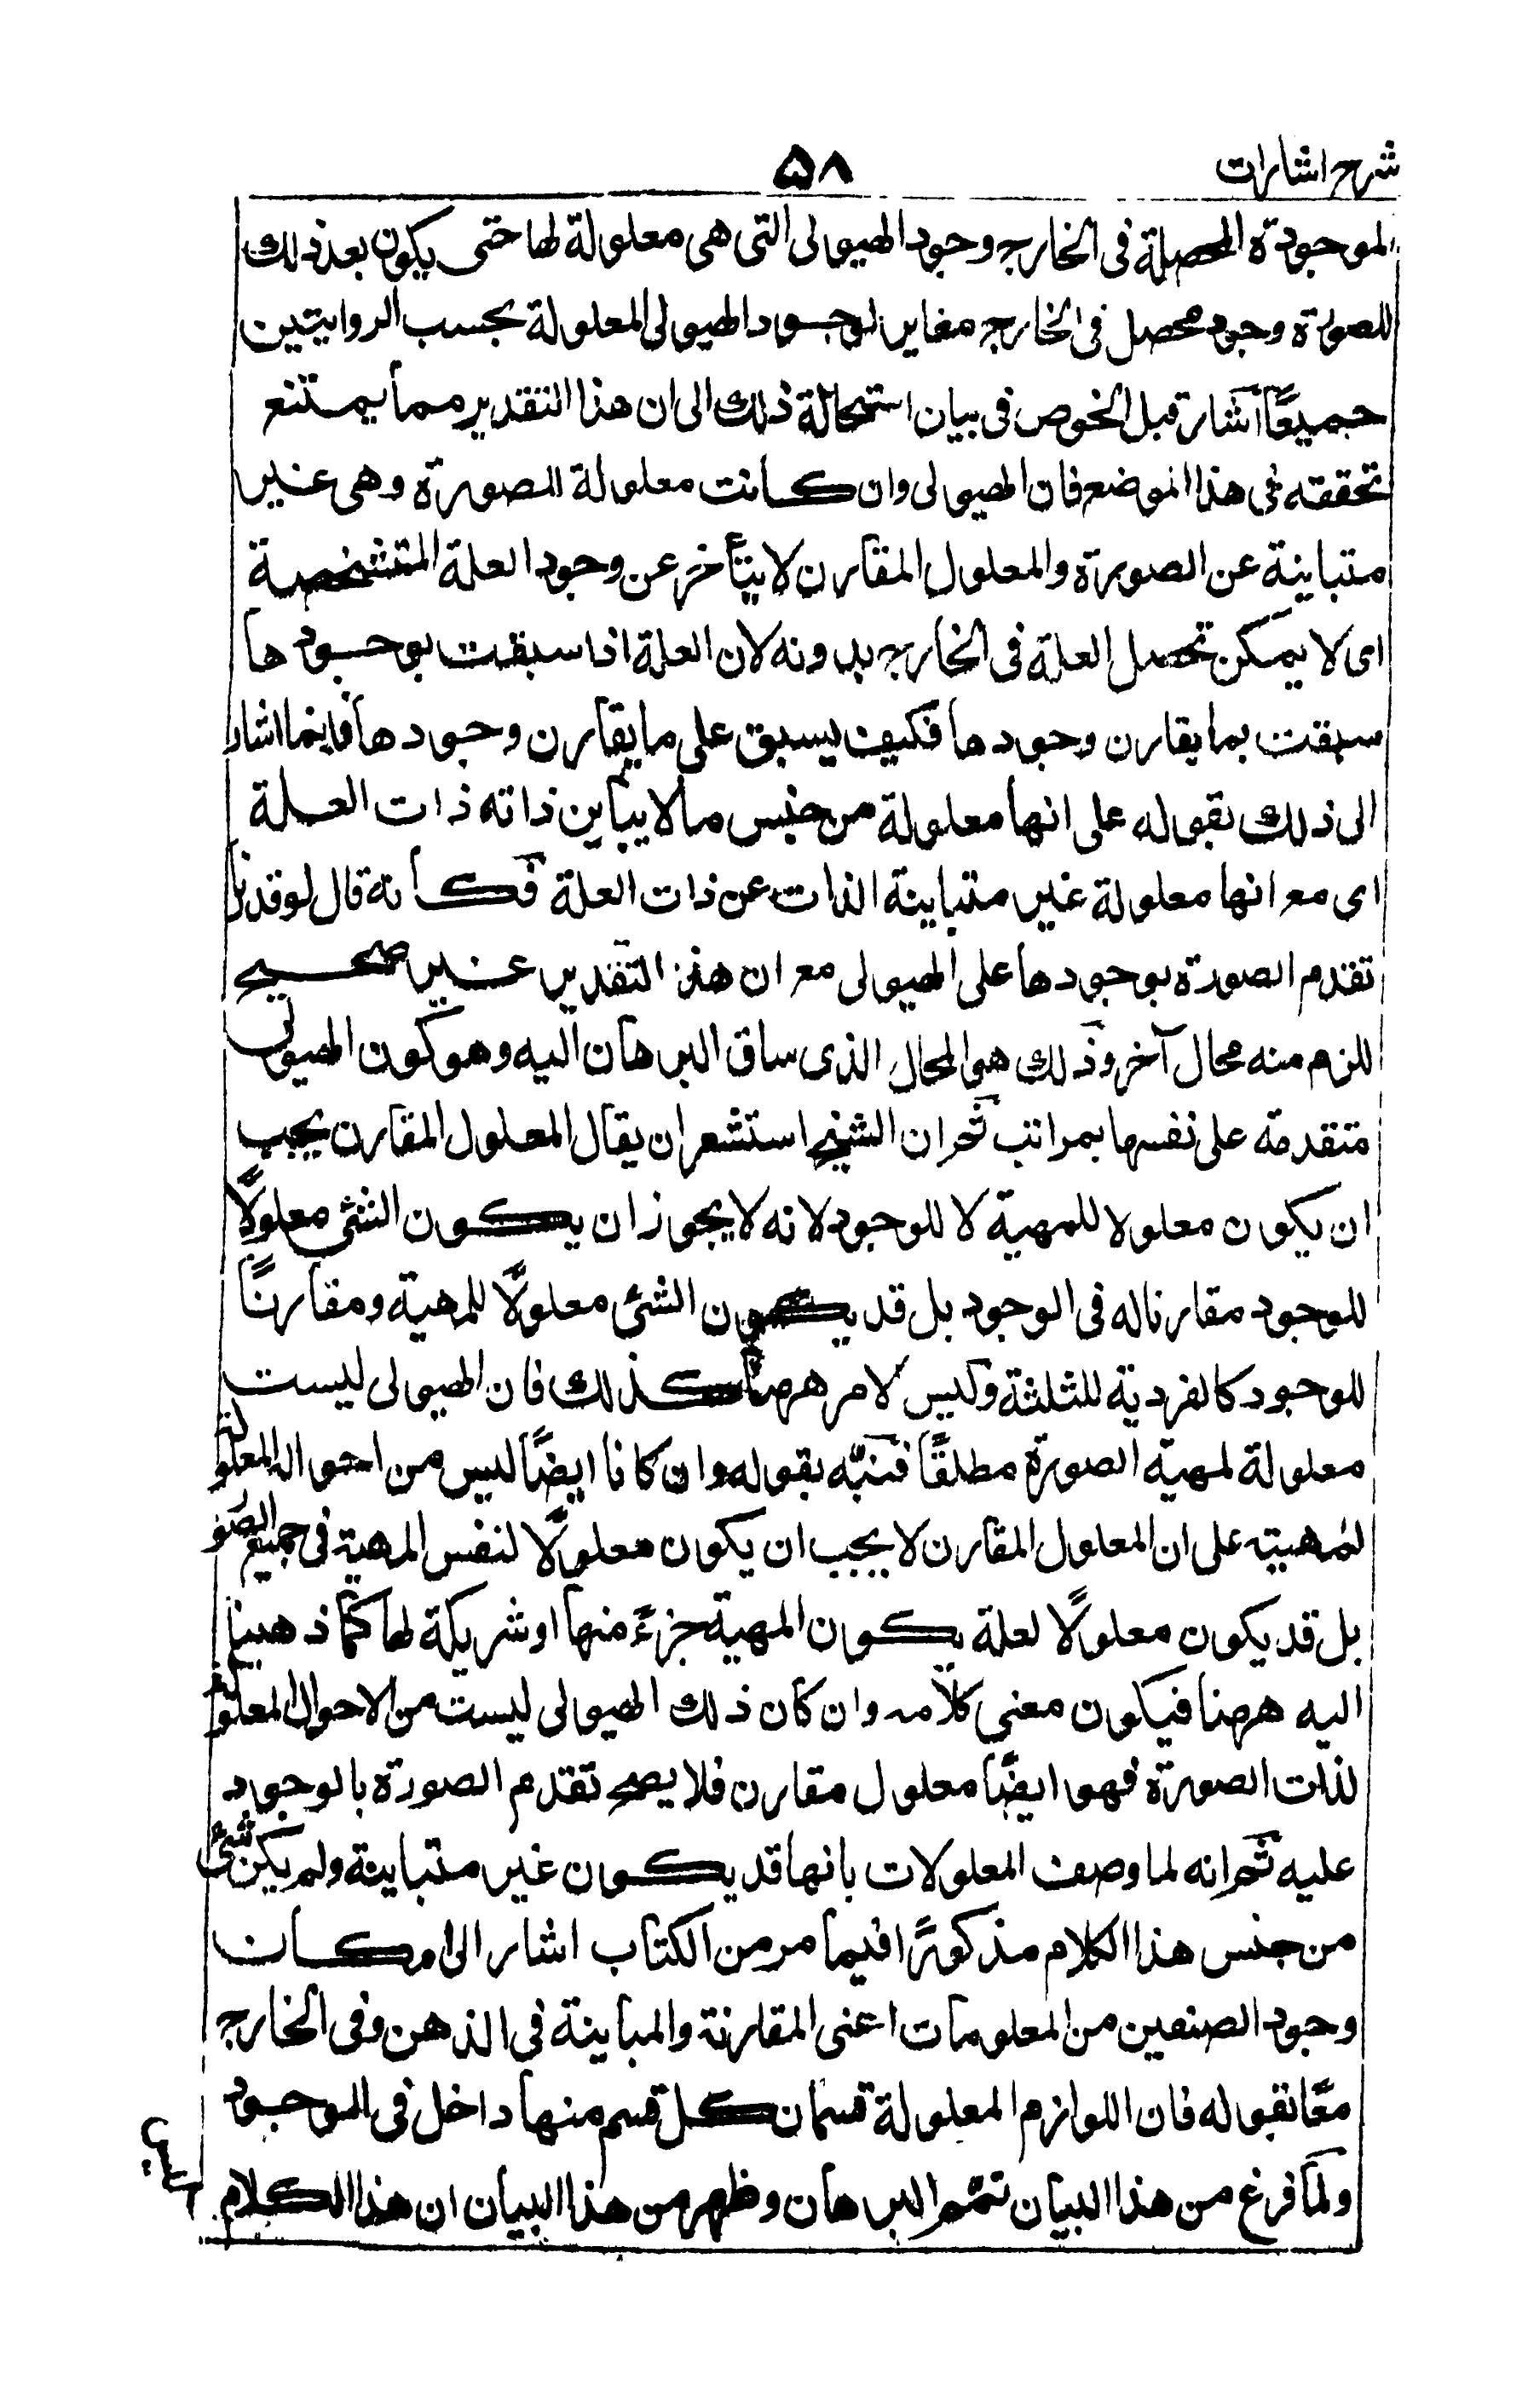 شرح اشارات ۵۸
الموجودة المحصلة فى الخارج وجود الهيولى التى هى معلولة لها حتى يكون بعد ذلك
للصورة وجود محصل فى الخارج مغاير لوجود الهيولى المعلولة بحسب الروايتين
جميعًا اشار قبل الخوص فى بيان استحالة ذلك الى ان هذا التقدير مما يمتنع
تحققه فى هذا الموضع فان الهيولى وان كانت معلولة للصورة وهى غير
متباينة عن الصورة والمعلول المقارن لا يتأخر عن وجود العلة المتشخصة
اى لا يمكن تحصل العلة فى الخارج بدونه لان العلة اذا سبقت بوجودها
سبقت بما يقارن وجودها فكيف يسبق على ما يقارن وجودها فاينما اشار
الى ذلك بقوله على انها معلولة من جنس مالا يباين ذاته ذات العلة
اى مع انها معلولة غير متباينة الذات عن ذات العلة فكأنه قال لو قدرنا
تقدم الصورة بوجودها على الهيولى مع ان هذا التقدير غير صحيح
للزم منه محال آخر وذلك هو المحال الذى ساق البرهان اليه وهو كون الهيولى
متقدمة على نفسها بمراتب ثم ان الشيخ استشعر ان يقال المعلول المقارن يجب
ان يكون معلولا للمهية لا للوجود لانه لا يجوز ان يكون الشئى معلولًا
للوجود مقارنا له فى الوجود بل قد يكون الشئى معلولًا للمهية ومقارنًا
للوجود كالفردية للثلثة وليس الامر ههنا كذلك فان الهيولى ليست
معلولة لمهية الصورة مطلقًا فنبّه بقوله وان كانا ايضًا ليس من احواله المعلولة
لمهيته على ان المعلول المقارن لا يجب ان يكون معلولًا لنفس المهية فى جميع الصور
بل قد يكون معلولًا لعلة يكون المهية جزءً منها او شريكة لها كما ذهبنا
اليه ههنا فيكون معنى كلامه وان كان ذلك الهيولى ليست من الاحوال المعلولة
لذات الصورة فهو ايضًا معلول مقارن فلا يصح تقدم الصورة بالوجود
عليه ثم انه لما وصف المعلولات بانها قد يكون غير متباينة ولم يكن شئى
من جنس هذا الكلام مذكورًا فيما مر من الكتاب اشار الى امكان
وجود الصنفين من المعلومات اعنى المقارنة والمباينة فى الذهن وفى الخارج
معًا بقوله فان اللوازم المعلولة قسمان كل قسم منها داخل فى الموجود
ولما فرغ من هذا البيان تمم البرهان وظهر من هذا البيان ان هذا الكلام